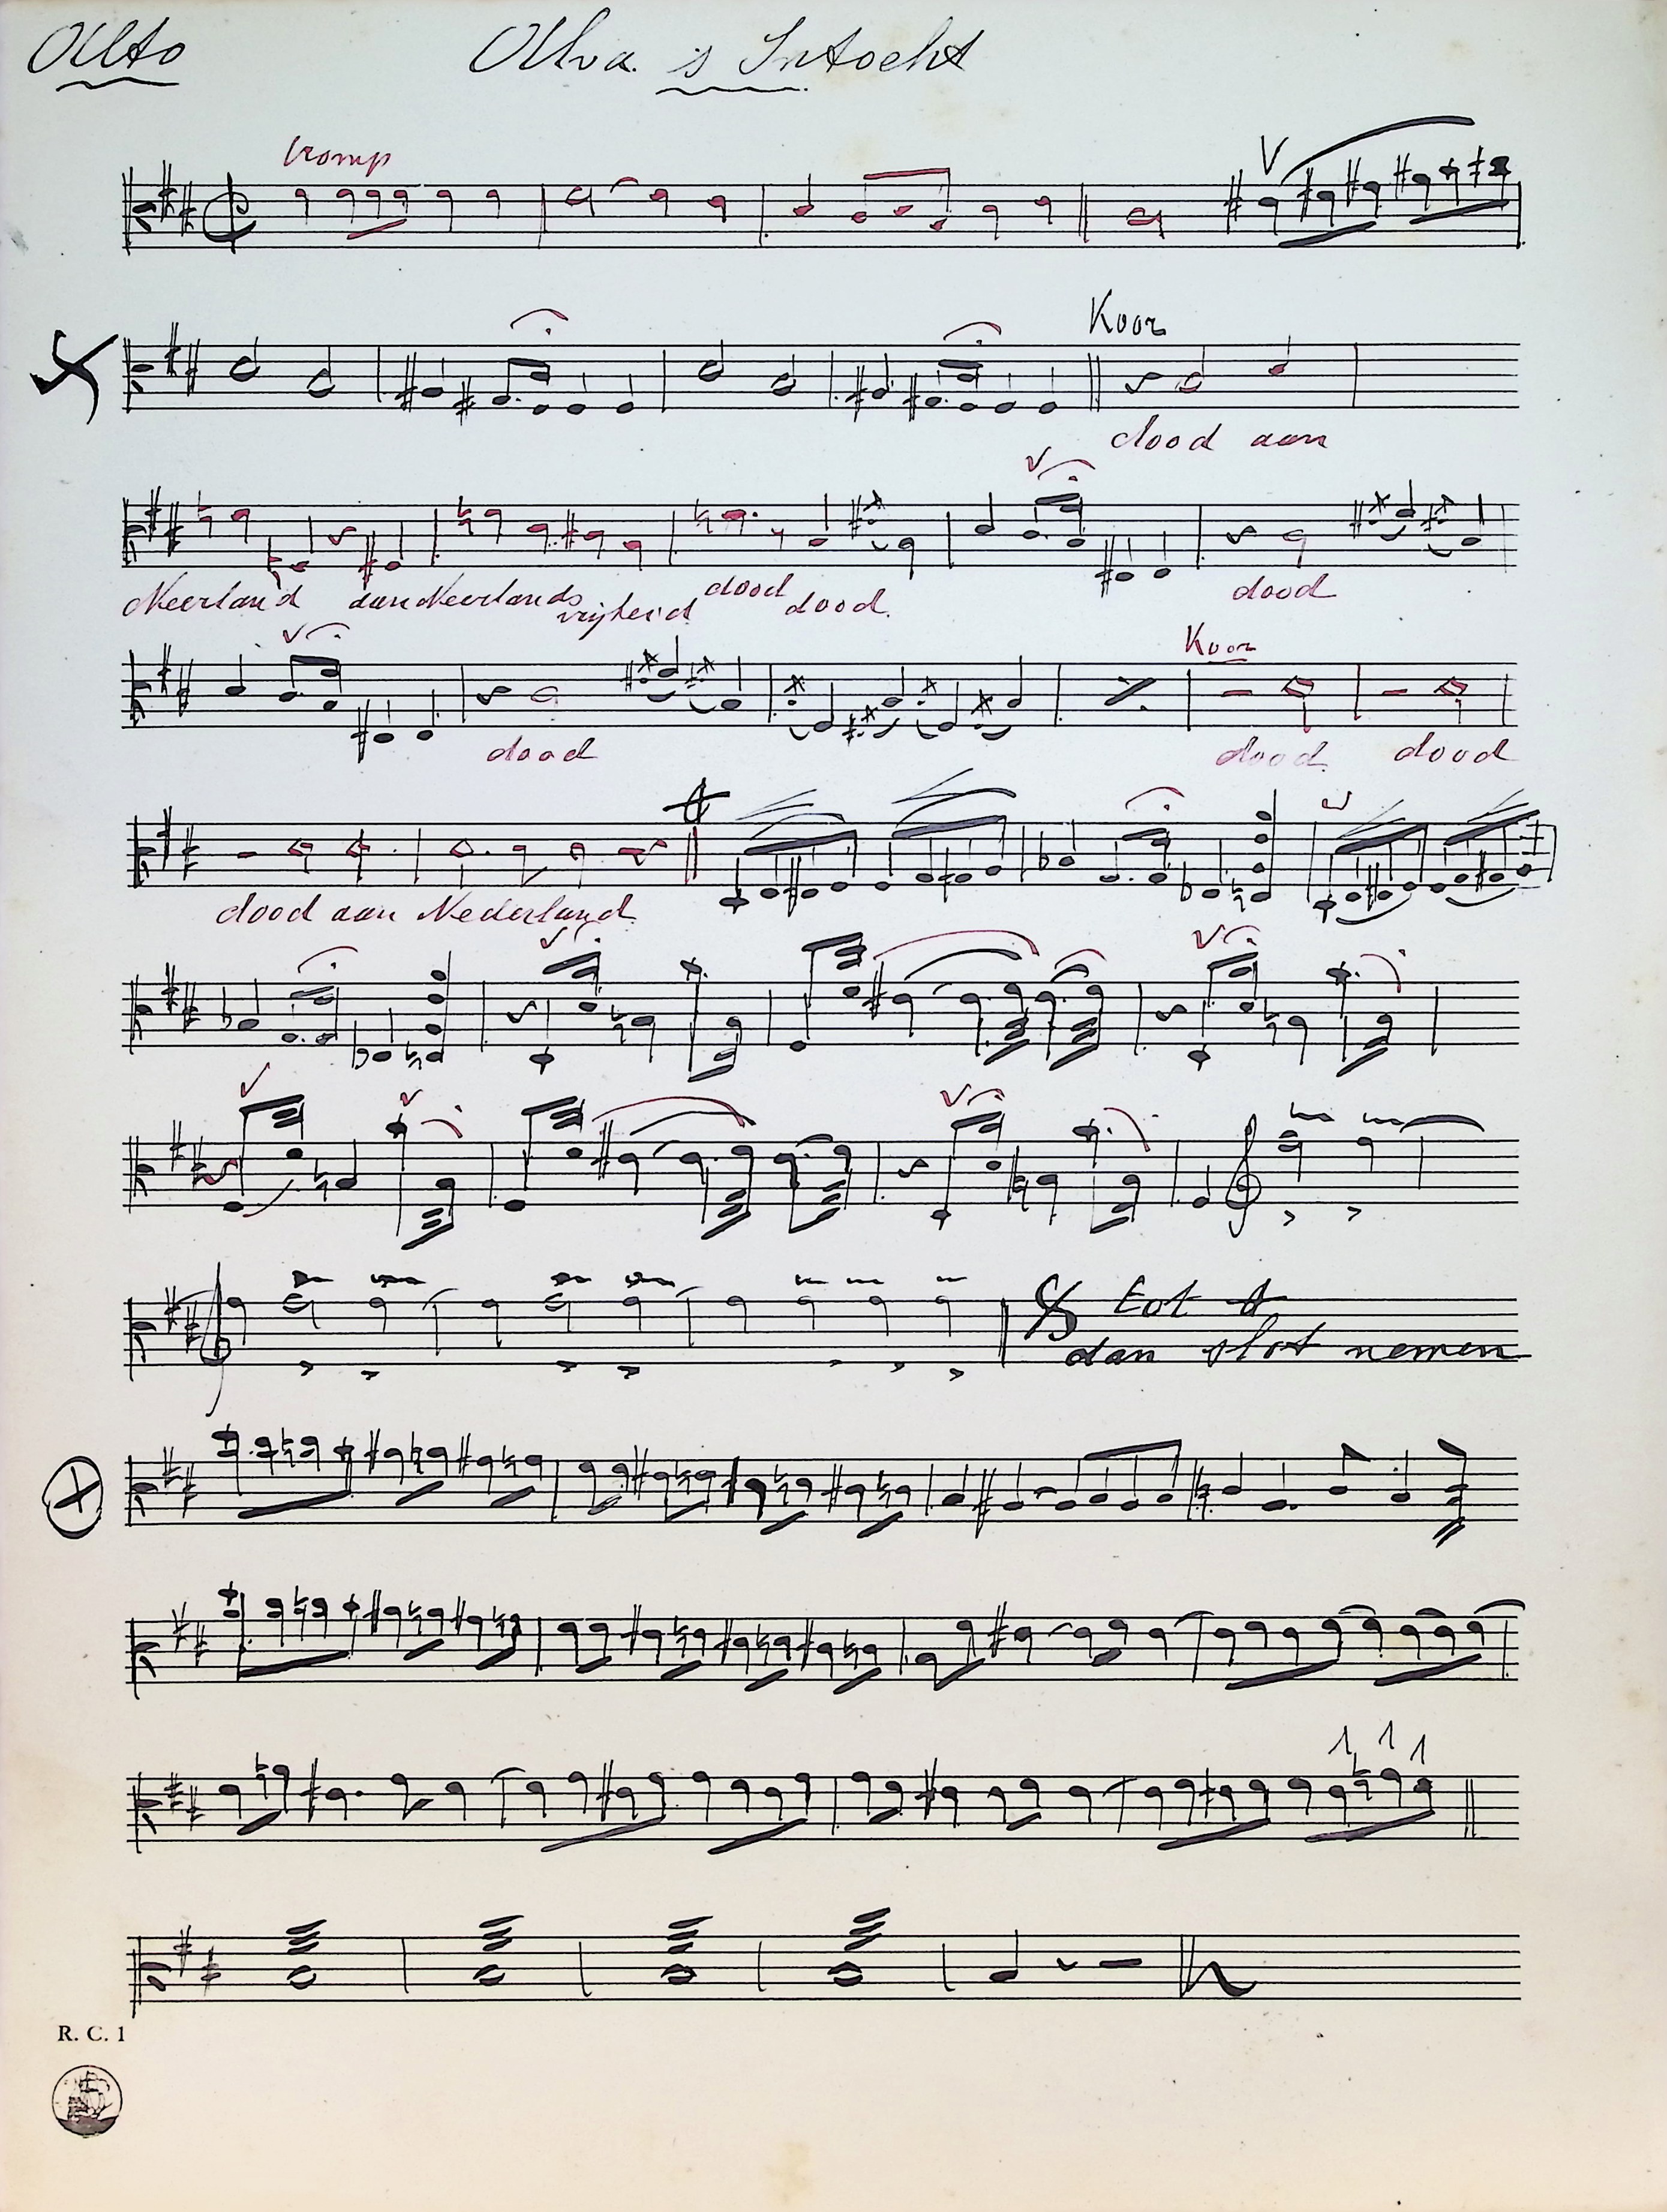 Alto Alva's Intocht
tromp
Koor
dood aan
Neerland aan Neerlands vrijheid dood dood.
dood
Koor
dood dood dood
dood aan Nederland
tot
dan slot nemen
R. C. 1